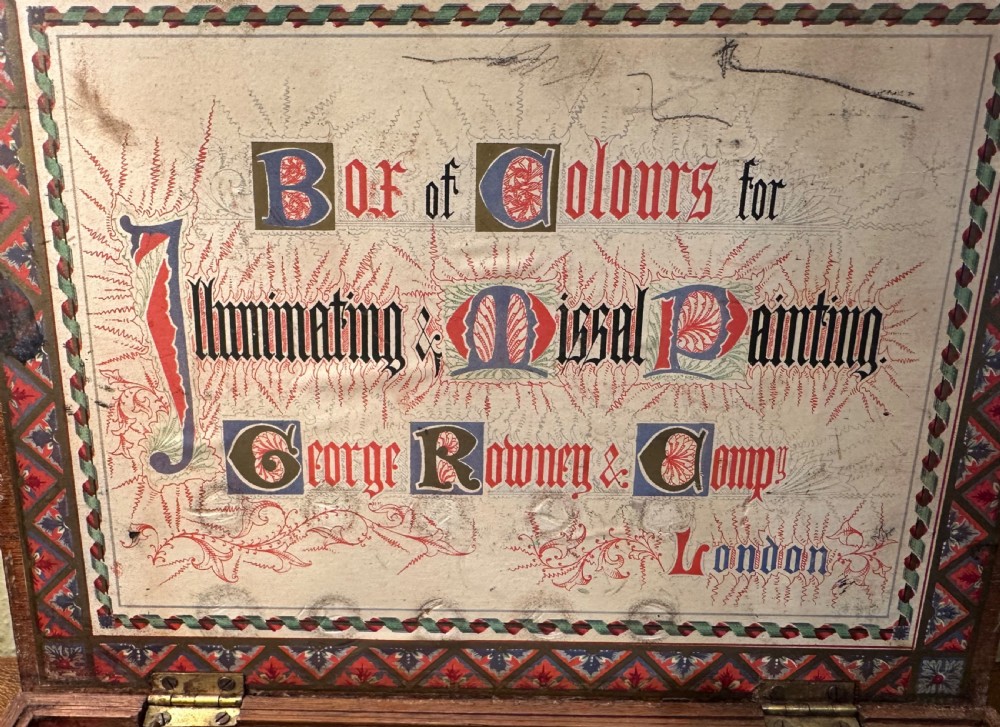 Box of Colours for
Illuminating & Missal Painting.
George Rowney & Compy
London